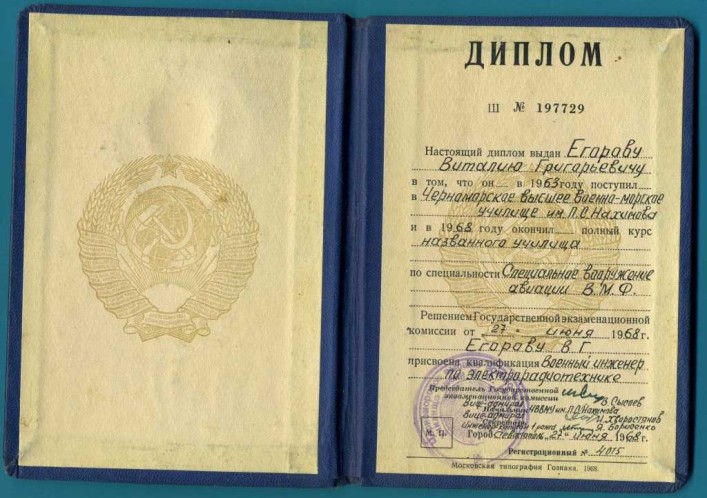 ДИПЛОМ
Ш № 197729
Настоящий диплом выдан Егораву
Виталию Григарьевичу
в том, что он в 1963 году поступил
в Чернаморское высшее Военна-морское
училище им. П.С. Нахимова
и в 1968 году окончил полный курс
названного училища
по специальности Специальное вооружение
авиации В.М.Ф.
Решением Государственной экзаменационной
комиссии от 27 июня 1968 г.
Егораву В.Г.
присвоена квалификация Военный инженер
по электрорадиотехнике
Председатель Государственной
экзаменационной комиссии
Вице-адмирал В. Сысоев
Начальник ЧВВМУ им. П.С. Нахимова
Вице-адмирал И. Хворостянов
Секретарь
1 ранга
М. П.
Город Севастополь "27" июня 1968 г.
Регистрационный № 4015
Московская типография Гознака. 1968.